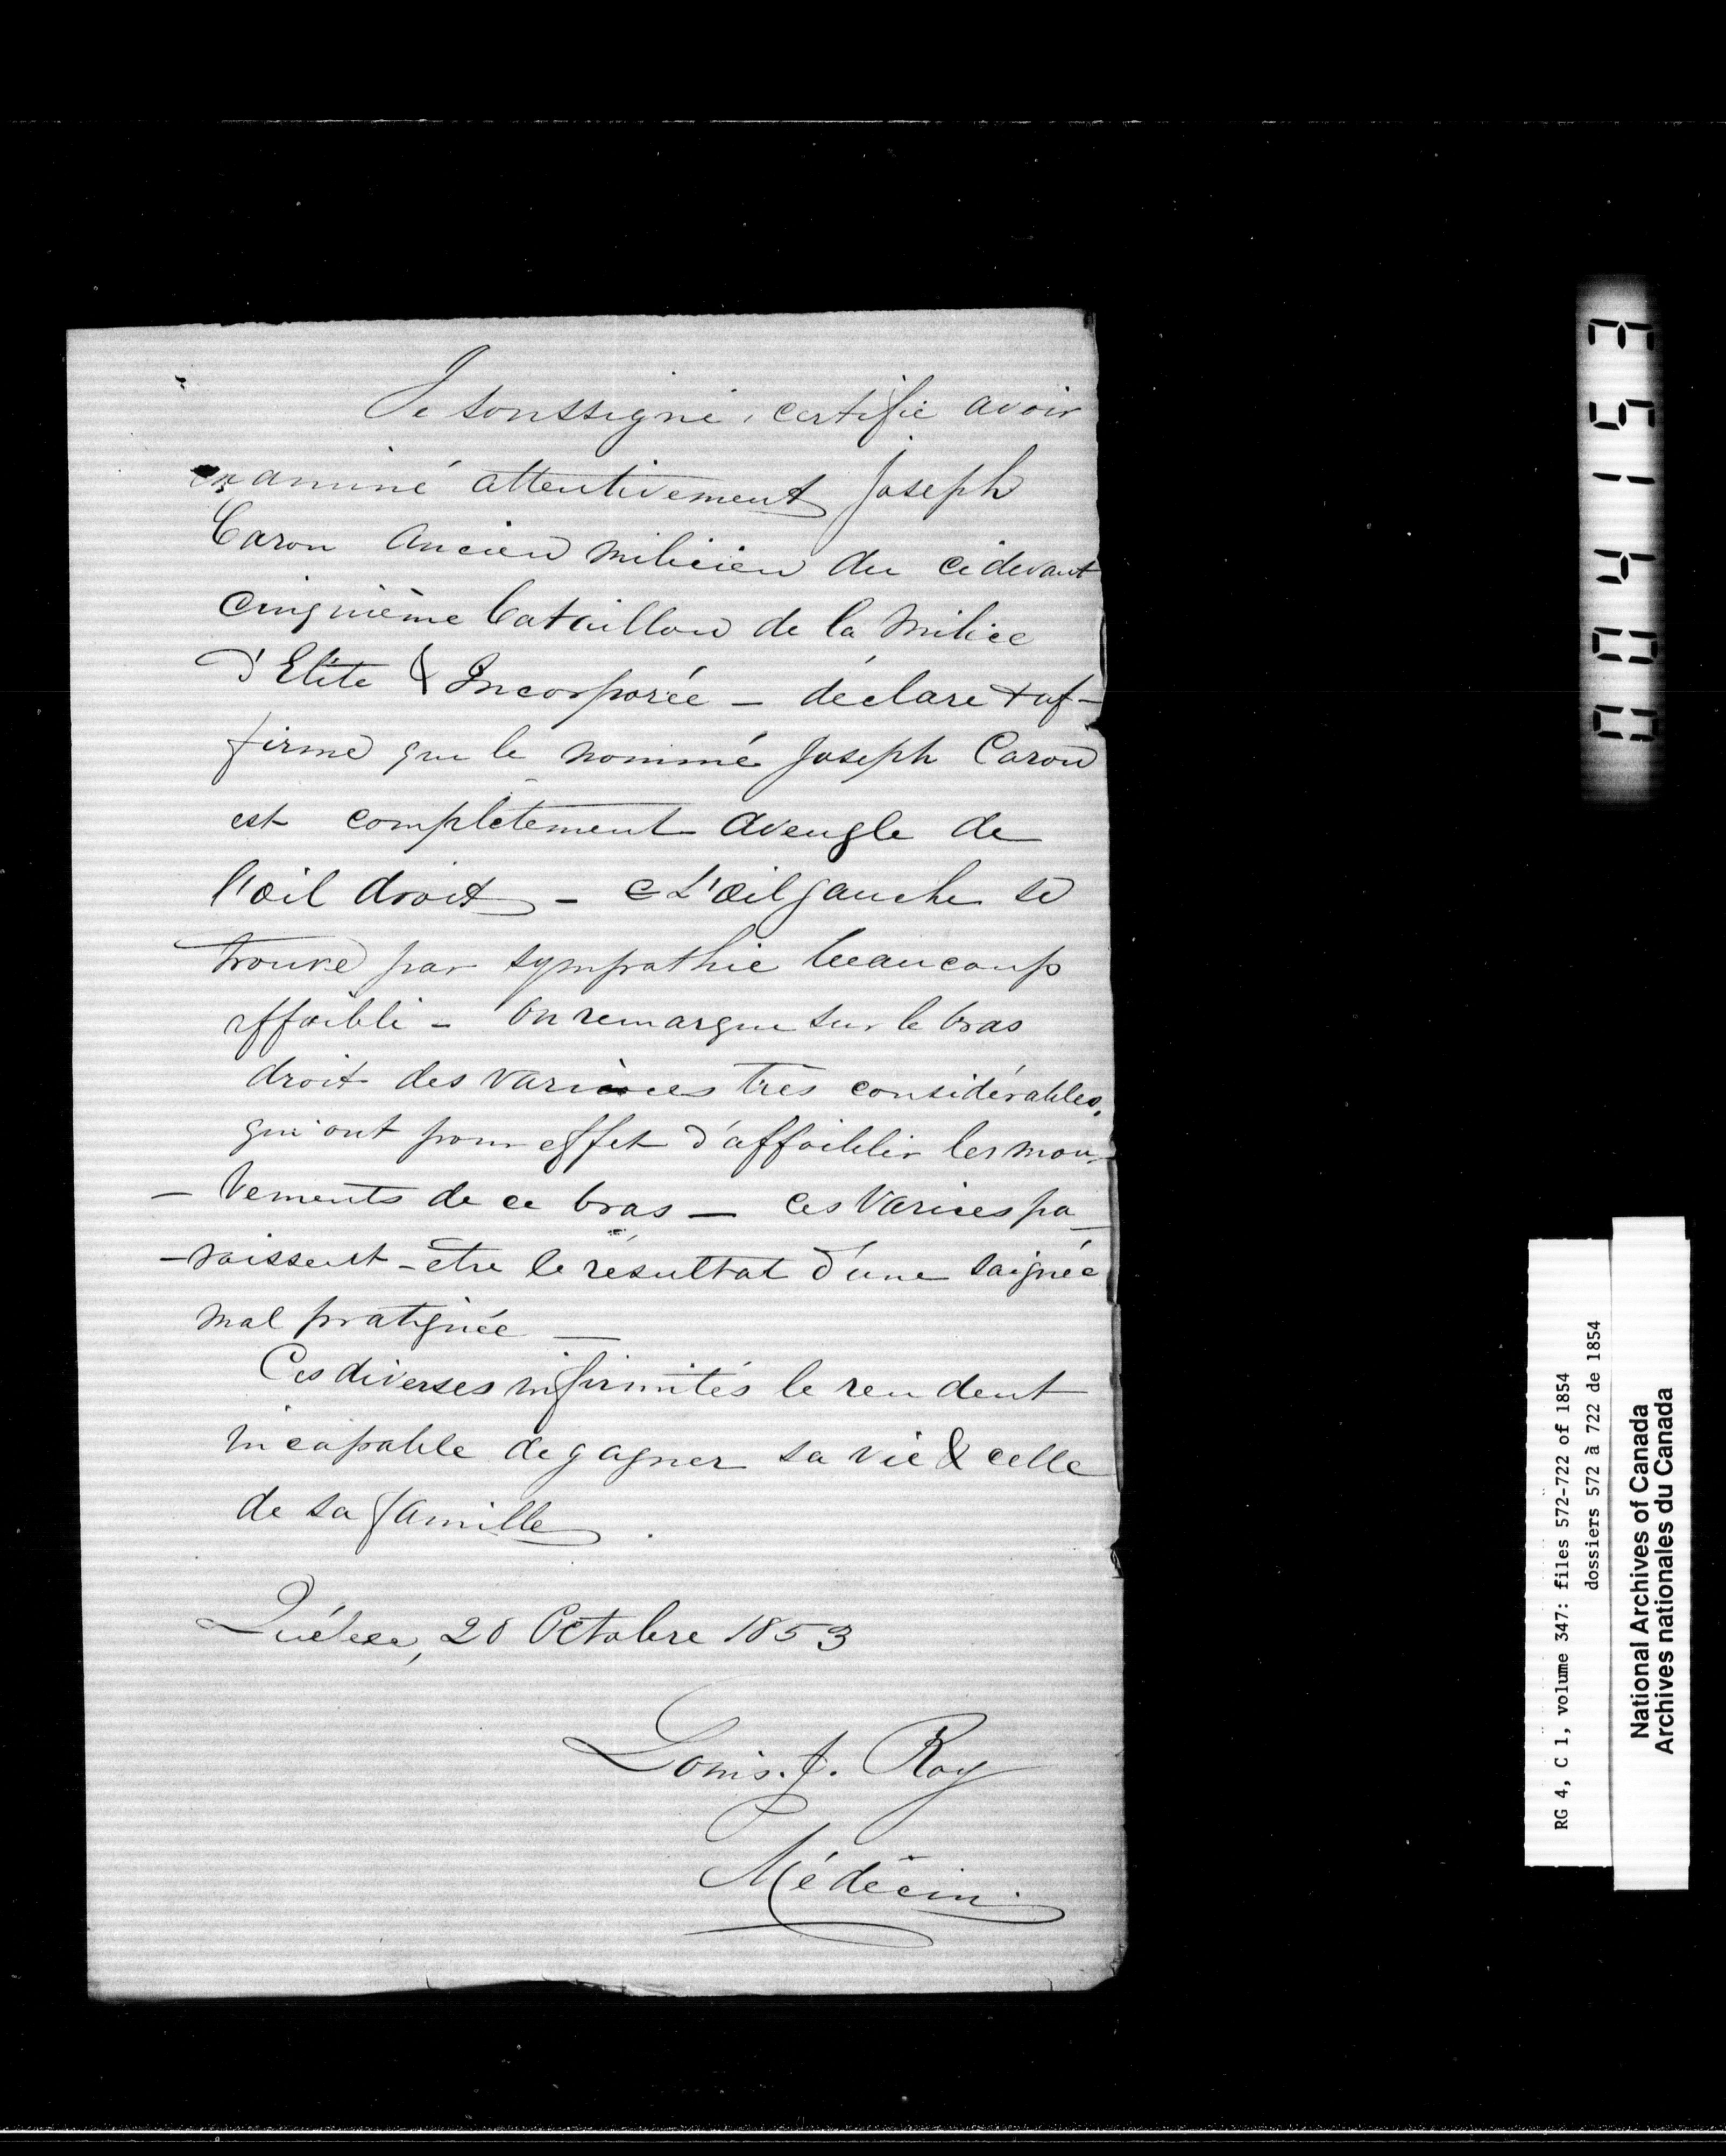 Je soussigné, certifie avoir
examiné attentivement Joseph
Caron Ancien milicien du cidevant
Cinquième bataillon de la Milice
d'Elite & Incorporée - déclare & af-
firme que le nommé Joseph Caron
est complètement aveugle de
l'œil droit - & L'œil gauche se
trouve par sympathie beaucoup
affaibli - On remarque sur le bras
droit des varices très considérables,
qui ont pour effet d'affaiblir les mou-
- vements de ce bras - Ces varices pa-
- raissent - être le résultat d'une saignée
mal pratiquée -
Ces diverses infirmités le rendent
incapable de gagner sa vie & celle
de sa famille.
Québec, 20 Octobre 1853
Louis. J. Roy
Médecin.
004153
RG 4, C 1, volume 347: files 572-722 of 1854
dossiers 572 à 722 de 1854
National Archives of Canada
Archives nationales du Canada